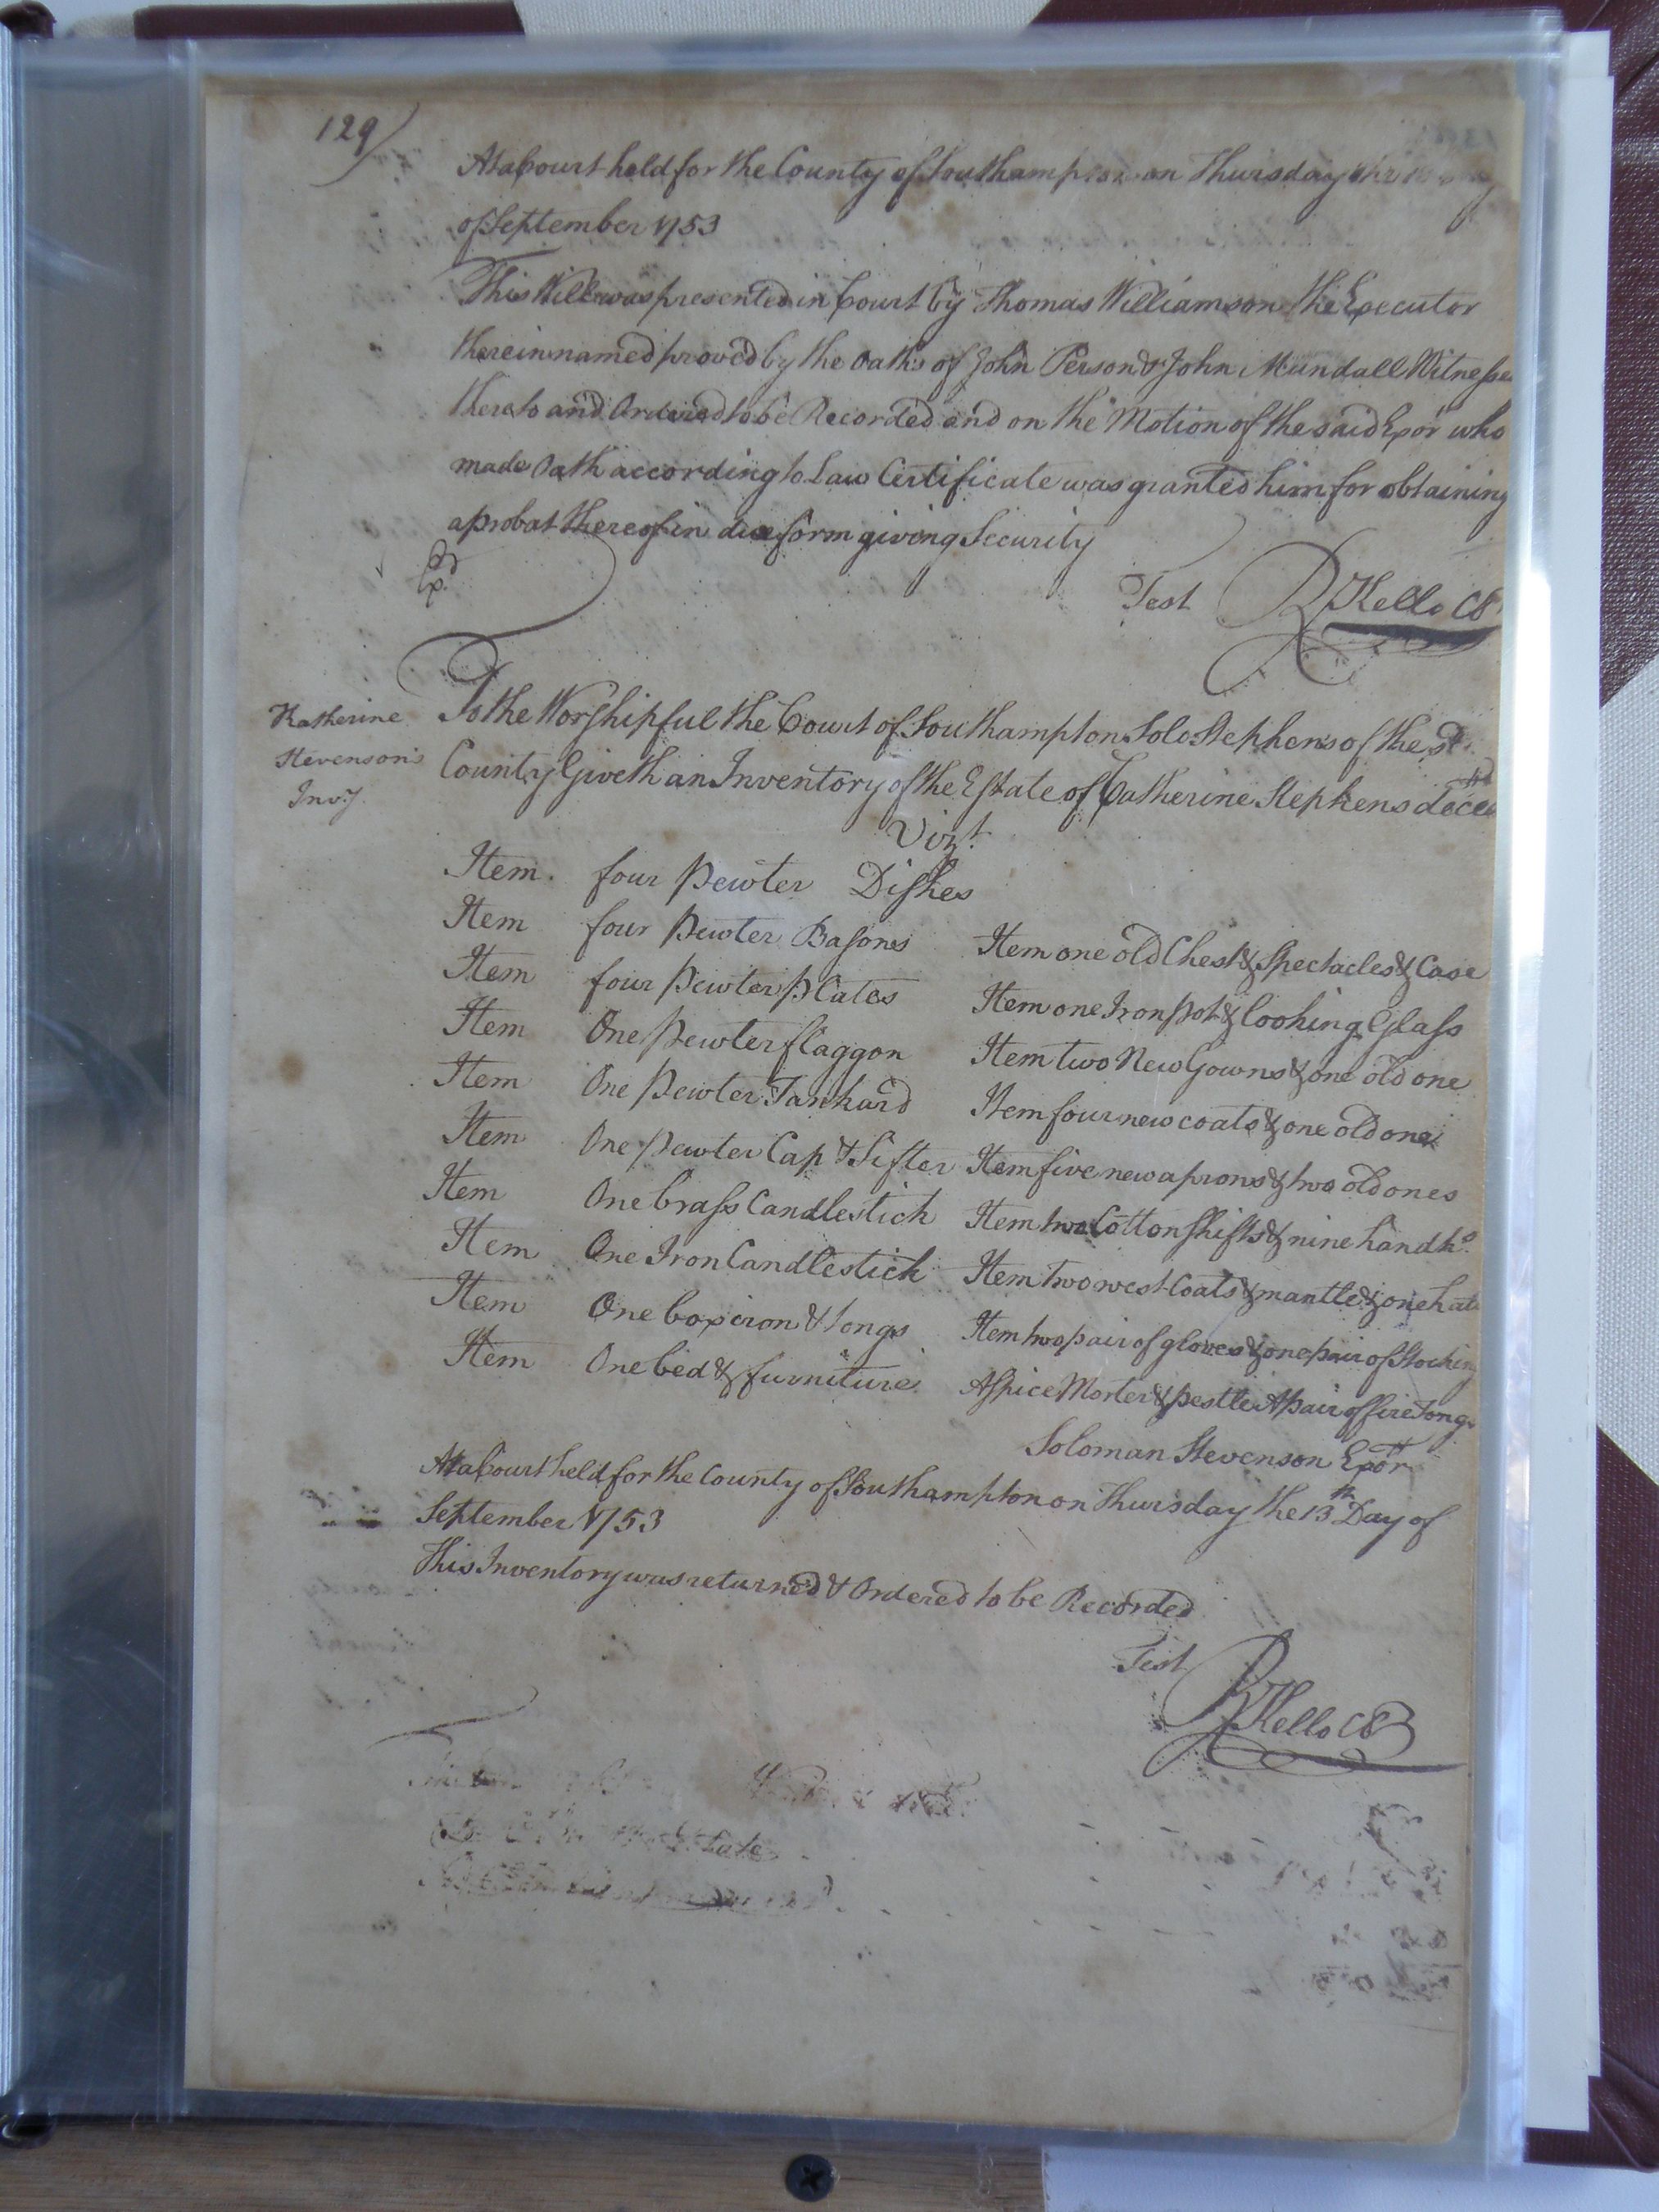 129
At a Court held for the County of Southampton on Thursday the
of September 1753
This Will was presented in Court by Thomas Williamson the Executor
therein named proved by the Oaths of John Person & John Mundall Witnesses
thereto and Ordered to be Recorded and on the Motion of the said Exor who
made Oath according to Law Certificate was granted him for obtaining
a probat thereof in due form giving Security
Test RKello CS
Katherine
Stevenson's
Invy.
To the Worshipful the Court of Southampton Solo Stephens of the sd
County Giveth an Inventory of the Estate of Catherine Stephens decd
Vizt.
Item four pewter Dishes
Item four pewter Basons
Item one old Chest & Spectacles & Case
Item four pewter plates
Item one Iron pot & looking Glass
Item One pewter flaggon
Item two New Gowns & one old one
Item One pewter Tankard
Item four new coats & one old one
Item One pewter Cap & Sifter
Item five new aprons & two old ones
Item One brass Candlestick
Item two Cotton Shifts & nine handks.
Item One Iron Candlestick
Item two west Coats & mantle & one hat
Item One box iron & tongs
Item two pair of gloves & one pair of Stockings
Item One bed & furniture
A Spice Morter & pestle A pair of fire Tongs
Soloman Stevenson Exor
At a Court held for the County of Southampton on Thursday the 13th Day of
September 1753
This Inventory was returned & Ordered to be Recorded
Test
RKello CS